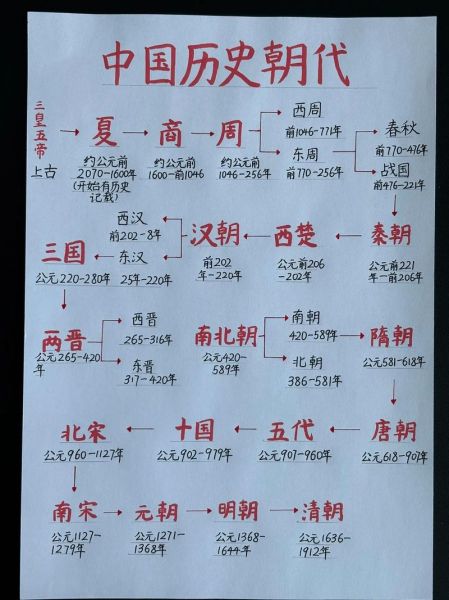 中国历史朝代
三皇五帝
上古
夏
约公元前
2070-1600年
(开始有历史
记载)
商
约公元前
1600-前1046
周
约公元前
1046-256年
西周
前1046-771年
东周
前770-256年
春秋
前770-476年
战国
前476-221年
秦朝
公元前221
年一前206年
西楚
公元前206
-202年
汉朝
前202
年-220年
西汉
前202-8年
东汉
25年-220年
三国
公元220-280年
两晋
公元265-420
年
西晋
265-316年
东晋
317-420年
南北朝
公元420-
589年
南朝
420-589年
北朝
386-581年
隋朝
公元581-618年
唐朝
公元618-907年
五代
公元907-960年
十国
公元902-979年
北宋
公元960-1127年
南宋
公元1127-
1279年
元朝
公元1271-
1368年
明朝
公元1368-
1644年
清朝
公元1636-
1912年